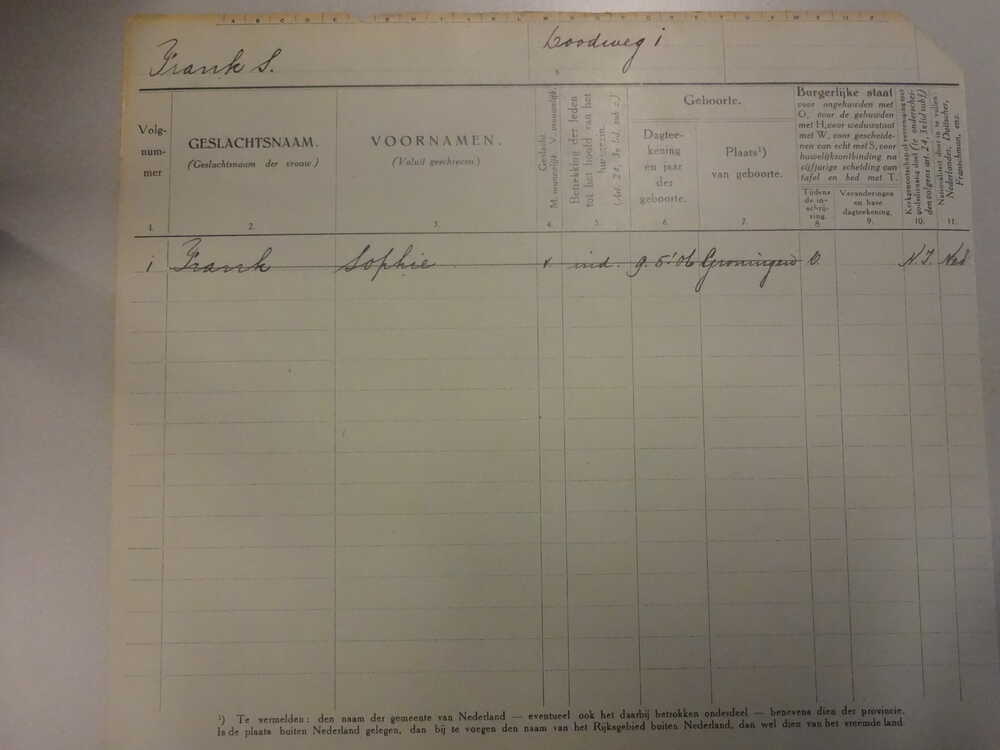 A B C D E F G H I J K L M N O P Q R S T U V W X Y Z
Frank S.
Loodweg 1
Volg-
num-
mer
GESLACHTSNAAM.
(Geslachtsnaam der vrouw)
VOORNAMEN.
(Voluit geschreven.)
Geslacht
M. mannelijk. V. vrouwelijk.
Betrekking der leden
tot het hoofd van het
huisgezin.
(Art. 24, 3e lid, sub 2)
Geboorte.
Dagtee-
kening
en jaar
der
geboorte.
Plaats¹)
van geboorte.
Burgerlijke staat
voor ongehuwden met
O, voor de gehuwden
met H, voor weduwstaat
met W, voor gescheide-
nen van echt met S, voor
huwelijksontbinding na
vijfjarige scheiding van
tafel en bed met T.
Tijdens
de in-
schrij-
ving.
Veranderingen
en hare
dagteekening.
Kerkgenootschap of vereeniging tot
godsdienstig doel (te onderschei-
den volgens art. 24, 3e lid sub f)
Nationaliteit door in te vullen
Nederlander, Duitscher,
Franschman, enz.
1. 2. 3. 4. 5. 6. 7. 8. 9. 10. 11.
1 Frank Sophie v ind. 9.5.'06 Groningen O. N.I. Ned
¹) Te vermelden: den naam der gemeente van Nederland — eventueel ook het daarbij betrokken onderdeel — benevens dien der provincie.
Is de plaats buiten Nederland gelegen, dan bij te voegen den naam van het Rijksgebied buiten Nederland, dan wel dien van het vreemde land.